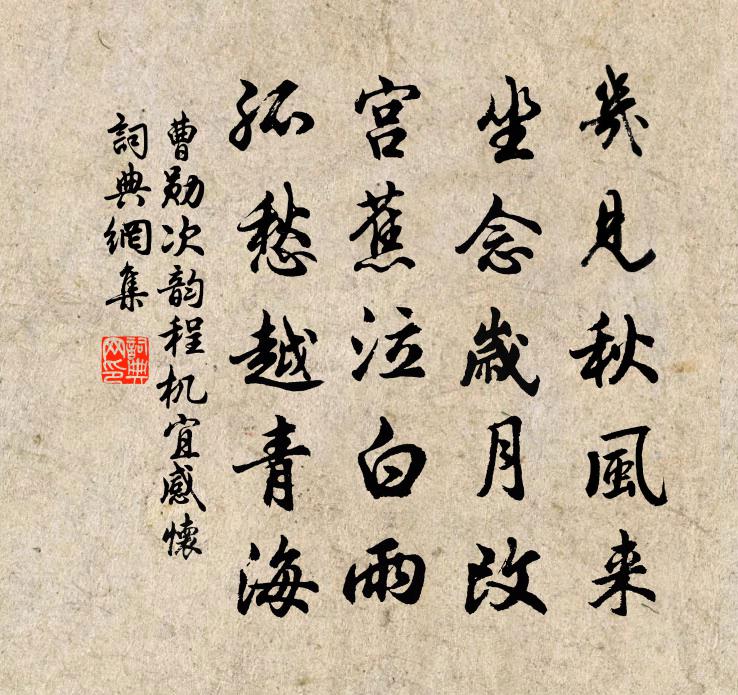 幾見秋風来
坐念歲月改
宫蕉泣白雨
孤愁越青海
曹勛次韵程机宜感懷
詞典網集
詞典網印